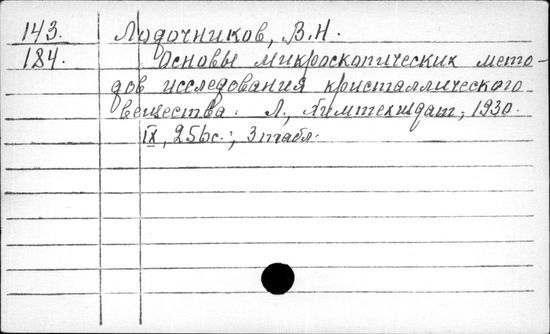 143. Лодочников, В.Н.
184. Основы микроскопических мето-
дов исследования кристаллического
вещества. Л., Химтехиздат, 1930.
IX, 256с.; 3 табл.